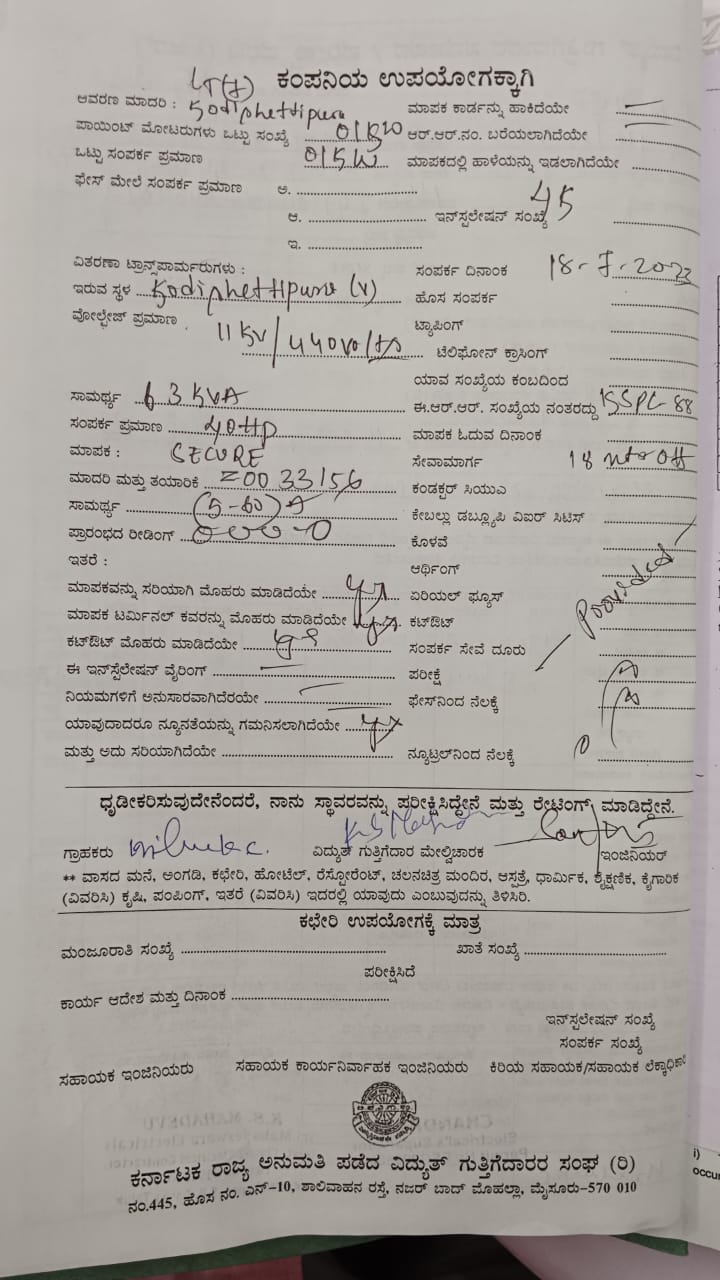 ಕಂಪನಿಯ ಉಪಯೋಗಕ್ಕಾಗಿ
ಆವರಣ ಮಾದರಿ : Kodiphettipura ಮಾಪಕ ಕಾರ್ಡನ್ನು ಹಾಕಿದೆಯೇ
ಪಾಯಿಂಟ್ ಮೋಟರುಗಳು ಒಟ್ಟು ಸಂಖ್ಯೆ ಆರ್.ಆರ್.ನಂ. ಬರೆಯಲಾಗಿದೆಯೇ
ಒಟ್ಟು ಸಂಪರ್ಕ ಪ್ರಮಾಣ ಮಾಪಕದಲ್ಲಿ ಹಾಳೆಯನ್ನು ಇಡಲಾಗಿದೆಯೇ
ಫೇಸ್ ಮೇಲೆ ಸಂಪರ್ಕ ಪ್ರಮಾಣ ಅ.
ಆ. ಇನ್‌ಸ್ಪಲೇಷನ್ ಸಂಖ್ಯೆ 45
ಇ.
ವಿತರಣಾ ಟ್ರಾನ್ಸ್‌ಪಾರ್ಮರುಗಳು : ಸಂಪರ್ಕ ದಿನಾಂಕ 18-7-2023
ಇರುವ ಸ್ಥಳ Kodiphettipura (V) ಹೊಸ ಸಂಪರ್ಕ
ವೋಲ್ಟೇಜ್ ಪ್ರಮಾಣ 11 KV/440 volts ಟ್ಯಾಪಿಂಗ್
ಟೆಲಿಫೋನ್ ಕ್ರಾಸಿಂಗ್
ಯಾವ ಸಂಖ್ಯೆಯ ಕಂಬದಿಂದ
ಸಾಮರ್ಥ್ಯ 63 KVA ಈ.ಆರ್.ಆರ್. ಸಂಖ್ಯೆಯ ನಂತರದ್ದು
ಸಂಪರ್ಕ ಪ್ರಮಾಣ 40 HP ಮಾಪಕ ಓದುವ ದಿನಾಂಕ
ಮಾಪಕ : SECURE ಸೇವಾಮಾರ್ಗ
ಮಾದರಿ ಮತ್ತು ತಯಾರಿಕೆ Z0033156 ಕಂಡಕ್ಟರ್ ಸಿಯುಎ
ಸಾಮರ್ಥ್ಯ (5-60) A ಕೇಬಲ್ಲು ಡಬ್ಲ್ಯೂಪಿ ವಿಐರ್ ಸಿಟಿಸ್
ಪ್ರಾರಂಭದ ರೀಡಿಂಗ್ ಕೊಳವೆ
ಇತರೆ : ಆರ್ಥಿಂಗ್
ಮಾಪಕವನ್ನು ಸರಿಯಾಗಿ ಮೊಹರು ಮಾಡಿದೆಯೇ yes ಏರಿಯಲ್ ಫ್ಯೂಸ್
ಮಾಪಕ ಟರ್ಮಿನಲ್ ಕವರನ್ನು ಮೊಹರು ಮಾಡಿದೆಯೇ yes ಕಟ್‌ಔಟ್ Provided
ಕಟ್‌ಔಟ್ ಮೊಹರು ಮಾಡಿದೆಯೇ yes ಸಂಪರ್ಕ ಸೇವೆ ದೂರು
ಈ ಇನ್‌ಸ್ಪೆಲೇಷನ್ ವೈರಿಂಗ್ ಪರೀಕ್ಷೆ
ನಿಯಮಗಳಿಗೆ ಅನುಸಾರವಾಗಿದೆರಯೇ ಫೇಸ್‌ನಿಂದ ನೆಲಕ್ಕೆ
ಯಾವುದಾದರೂ ನ್ಯೂನತೆಯನ್ನು ಗಮನಿಸಲಾಗಿದೆಯೇ yes
ಮತ್ತು ಅದು ಸರಿಯಾಗಿದೆಯೇ ನ್ಯೂಟ್ರಲ್‌ನಿಂದ ನೆಲಕ್ಕೆ
ಧೃಡೀಕರಿಸುವುದೇನೆಂದರೆ, ನಾನು ಸ್ಥಾವರವನ್ನು ಪರೀಕ್ಷಿಸಿದ್ದೇನೆ ಮತ್ತು ರೇಟಿಂಗ್ ಮಾಡಿದ್ದೇನೆ.
ಗ್ರಾಹಕರು ವಿದ್ಯುತ್ ಗುತ್ತಿಗೆದಾರ ಮೇಲ್ವಿಚಾರಕ ಇಂಜಿನಿಯರ್
** ವಾಸದ ಮನೆ, ಅಂಗಡಿ, ಕಛೇರಿ, ಹೋಟೆಲ್, ರೆಸ್ಟೋರೆಂಟ್, ಚಲನಚಿತ್ರ ಮಂದಿರ, ಆಸ್ಪತ್ರೆ, ಧಾರ್ಮಿಕ, ಶೈಕ್ಷಣಿಕ, ಕೈಗಾರಿಕ
(ವಿವರಿಸಿ) ಕೃಷಿ, ಪಂಪಿಂಗ್, ಇತರೆ (ವಿವರಿಸಿ) ಇದರಲ್ಲಿ ಯಾವುದು ಎಂಬುವುದನ್ನು ತಿಳಿಸಿರಿ.
ಕಛೇರಿ ಉಪಯೋಗಕ್ಕೆ ಮಾತ್ರ
ಮಂಜೂರಾತಿ ಸಂಖ್ಯೆ ಖಾತೆ ಸಂಖ್ಯೆ
ಪರೀಕ್ಷಿಸಿದೆ
ಕಾರ್ಯ ಆದೇಶ ಮತ್ತು ದಿನಾಂಕ
ಇನ್‌ಸ್ಪಲೇಷನ್ ಸಂಖ್ಯೆ
ಸಂಪರ್ಕ ಸಂಖ್ಯೆ
ಸಹಾಯಕ ಇಂಜಿನಿಯರು ಸಹಾಯಕ ಕಾರ್ಯನಿರ್ವಾಹಕ ಇಂಜಿನಿಯರು ಕಿರಿಯ ಸಹಾಯಕ/ಸಹಾಯಕ ಲೆಕ್ಕಾಧಿಕಾ
ಕರ್ನಾಟಕ ರಾಜ್ಯ ಅನುಮತಿ ಪಡೆದ ವಿದ್ಯುತ್ ಗುತ್ತಿಗೆದಾರರ ಸಂಘ (ರಿ)
ನಂ.445, ಹೊಸ ನಂ. ಎನ್-10, ಶಾಲಿವಾಹನ ರಸ್ತೆ, ನಜರ್ ಬಾದ್ ಮೊಹಲ್ಲಾ, ಮೈಸೂರು-570 010
i)
occu